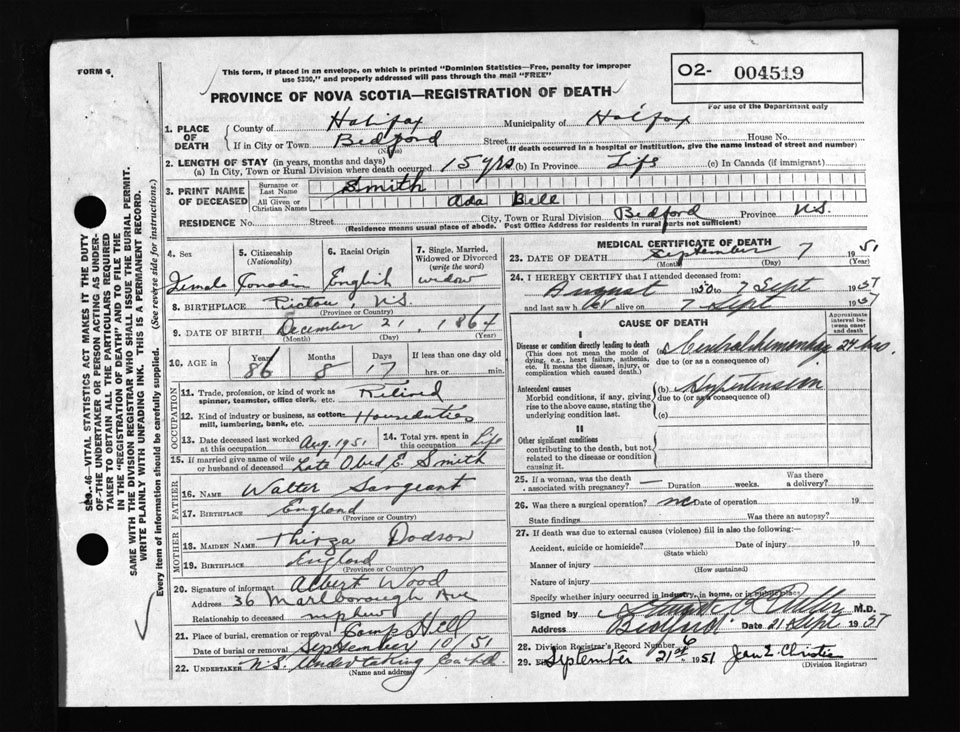 FORM 6.
This form, if placed in an envelope, on which is printed "Dominion Statistics—Free, penalty for improper
use $300," and properly addressed will pass through the mail "FREE"
PROVINCE OF NOVA SCOTIA—REGISTRATION OF DEATH
O2- 004519
For use of the Department only
1. PLACE OF DEATH
County of Halifax Municipality of Halifax
If in City or Town Bedford Street House No.
(Name) (If death occurred in a hospital or institution, give the name instead of street and number)
2. LENGTH OF STAY (in years, months and days)
(a) In City, Town or Rural Division where death occurred 15 yrs (b) In Province Life (c) In Canada (if immigrant)
3. PRINT NAME OF DECEASED
Surname or Last Name Smith
All Given or Christian Names Ada Bell
RESIDENCE No. Street City, Town or Rural Division Bedford Province N.S.
(Residence means usual place of abode. Post Office Address for residents in rural parts not sufficient)
4. Sex Female
5. Citizenship (Nationality) Canadian
6. Racial Origin English
7. Single, Married, Widowed or Divorced (write the word) widow
8. BIRTHPLACE Pictou, N.S.
(Province or Country)
9. DATE OF BIRTH December 21, 1864
(Month) (Day) (Year)
10. AGE in Years 86 Months 8 Days 17 If less than one day old
hrs. or min.
OCCUPATION
11. Trade, profession, or kind of work as spinner, teamster, office clerk, etc. Retired
12. Kind of industry or business, as cotton mill, lumbering, bank, etc. Houseduties
13. Date deceased last worked at this occupation Aug. 1951 14. Total yrs. spent in this occupation Life
15. If married give name of wife or husband of deceased Late Obed E. Smith
FATHER
16. NAME Walter Sargeant
17. BIRTHPLACE England
(Province or Country)
MOTHER
18. MAIDEN NAME Thirza Dodson
19. BIRTHPLACE England
(Province or Country)
20. Signature of informant Albert Wood
Address 36 Marlborough Ave
Relationship to deceased nephew
21. Place of burial, cremation or removal Camp Hill
Date of burial or removal September 10/51
22. UNDERTAKER N.S. Undertaking Co Ltd.
(Name and address)
MEDICAL CERTIFICATE OF DEATH
23. DATE OF DEATH September 7 1951
(Month) (Day) (Year)
24. I HEREBY CERTIFY that I attended deceased from:
August 1950 to 7 Sept 1951
and last saw her alive on 7 Sept 1951
CAUSE OF DEATH
Approximate interval between onset and death
I
Disease or condition directly leading to death
(This does not mean the mode of dying, e.g., heart failure, asthenia, etc. It means the disease, injury, or complication which caused death.)
(a) hemorrhage 24 hrs.
due to (or as a consequence of)
Antecedent causes
Morbid conditions, if any, giving rise to the above cause, stating the underlying condition last.
(b) Hypertension
due to (or as a consequence of)
(c)
II
Other significant conditions
contributing to the death, but not related to the disease or condition causing it.
25. If a woman, was the death associated with pregnancy? — Duration weeks. Was there a delivery?
26. Was there a surgical operation? no Date of operation 19
State findings Was there an autopsy?
27. If death was due to external causes (violence) fill in also the following:—
Accident, suicide or homicide? Date of injury 19
(State which)
Manner of injury
(How sustained)
Nature of injury
Specify whether injury occurred in industry, in home, or in public place
Signed by M.D.
Address Bedford Date 21 Sept 1951
28. Division Registrar's Record Number 6
29. Filed September 21st 1951 Jean E. Christie
(Division Registrar)
SEC. 46—VITAL STATISTICS ACT MAKES IT THE DUTY
OF THE UNDERTAKER OR PERSON ACTING AS UNDER-
TAKER TO OBTAIN ALL THE PARTICULARS REQUIRED
IN THE "REGISTRATION OF DEATH" AND TO FILE THE
SAME WITH THE DIVISION REGISTRAR WHO SHALL ISSUE THE BURIAL PERMIT.
WRITE PLAINLY WITH UNFADING INK. THIS IS A PERMANENT RECORD.
Every item of information should be carefully supplied. (See reverse side for instructions.)